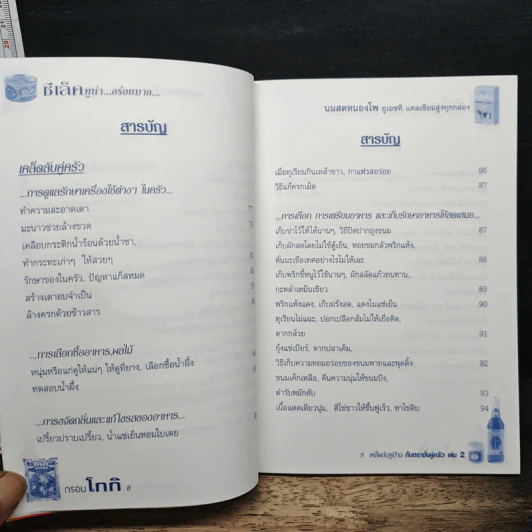 ซีเล็คทูน่า...อร่อยมาก...
สารบัญ
เคล็ดลับคู่ครัว
...การดูแลรักษาเครื่องใช้ต่างๆ ในครัว...
ทำความสะอาดเตา 77
มะนาวช่วยล้างขวด
เคลือบกระติกน้ำร้อนด้วยน้ำชา,
ทำกระทะเก่าๆ ให้สวยๆ
รักษาของในครัว, ปัญหาแก๊สหมด
สร้างเตาอบจำเป็น
ล้างครกด้วยข้าวสาร
...การเลือกซื้ออาหาร,ผลไม้
หนุ่มหรือแก่ดูให้แน่ๆ ให้ดูที่ยาง, เลือกซื้อน้ำผึ้ง
ทดสอบน้ำผึ้ง
...การขจัดกลิ่นและแก้ไขรสของอาหาร...
เปรี้ยวปราบเปรี้ยว, น้ำแช่เย็นหอมใบเตย
กรอบ โกกิ 8
นมสดหนองโพ ยูเอชที แคลเซียมสูงทุกกล่อง
สารบัญ
เมื่อทุเรียนกินเหล้าขาว, กาแฟรสอร่อย 86
วิธีแก้ครกเผ็ด 87
...การเลือก การเตรียมอาหาร และเก็บรักษาอาหารให้สดเสมอ...
เก็บข่าไว้ให้ได้นานๆ, วิธีปิดปากถุงขนม 87
เก็บผักสดโดยไม่ใช้ตู้เย็น, หอยขมกลัวพริกแห้ง,
หั่นมะเขือเทศอย่างไรไม่ให้เละ 88
เก็บพริกขี้หนูไว้ใช้นานๆ, ผักสลัดแก้วทนทาน,
กะหล่ำเหม็นเขียว 89
พริกแห้งแดง, เก็บฝรั่งสด, แตงโมแช่เย็น 90
ทุเรียนไม่แฉะ, ปอกเปลือกส้มไม่ให้เยื่อติด,
ตากกล้วย 91
กุ้งแช่เบียร์, ตากปลาเค็ม,
วิธีเก็บความหอมอร่อยของขนมพายและพุดดิ้ง 92
ขนมเค้กเหลือ, คืนความนุ่มให้ขนมปัง,
ตำรับหมักตับ 93
เนื้อแดดเดียวนุ่ม, ตีไข่ขาวให้ขึ้นฟูเร็ว, หาไข่ดิบ 94
9 เคล็ดลับคู่บ้าน กับตราชั่งคู่ครัว เล่ม 2